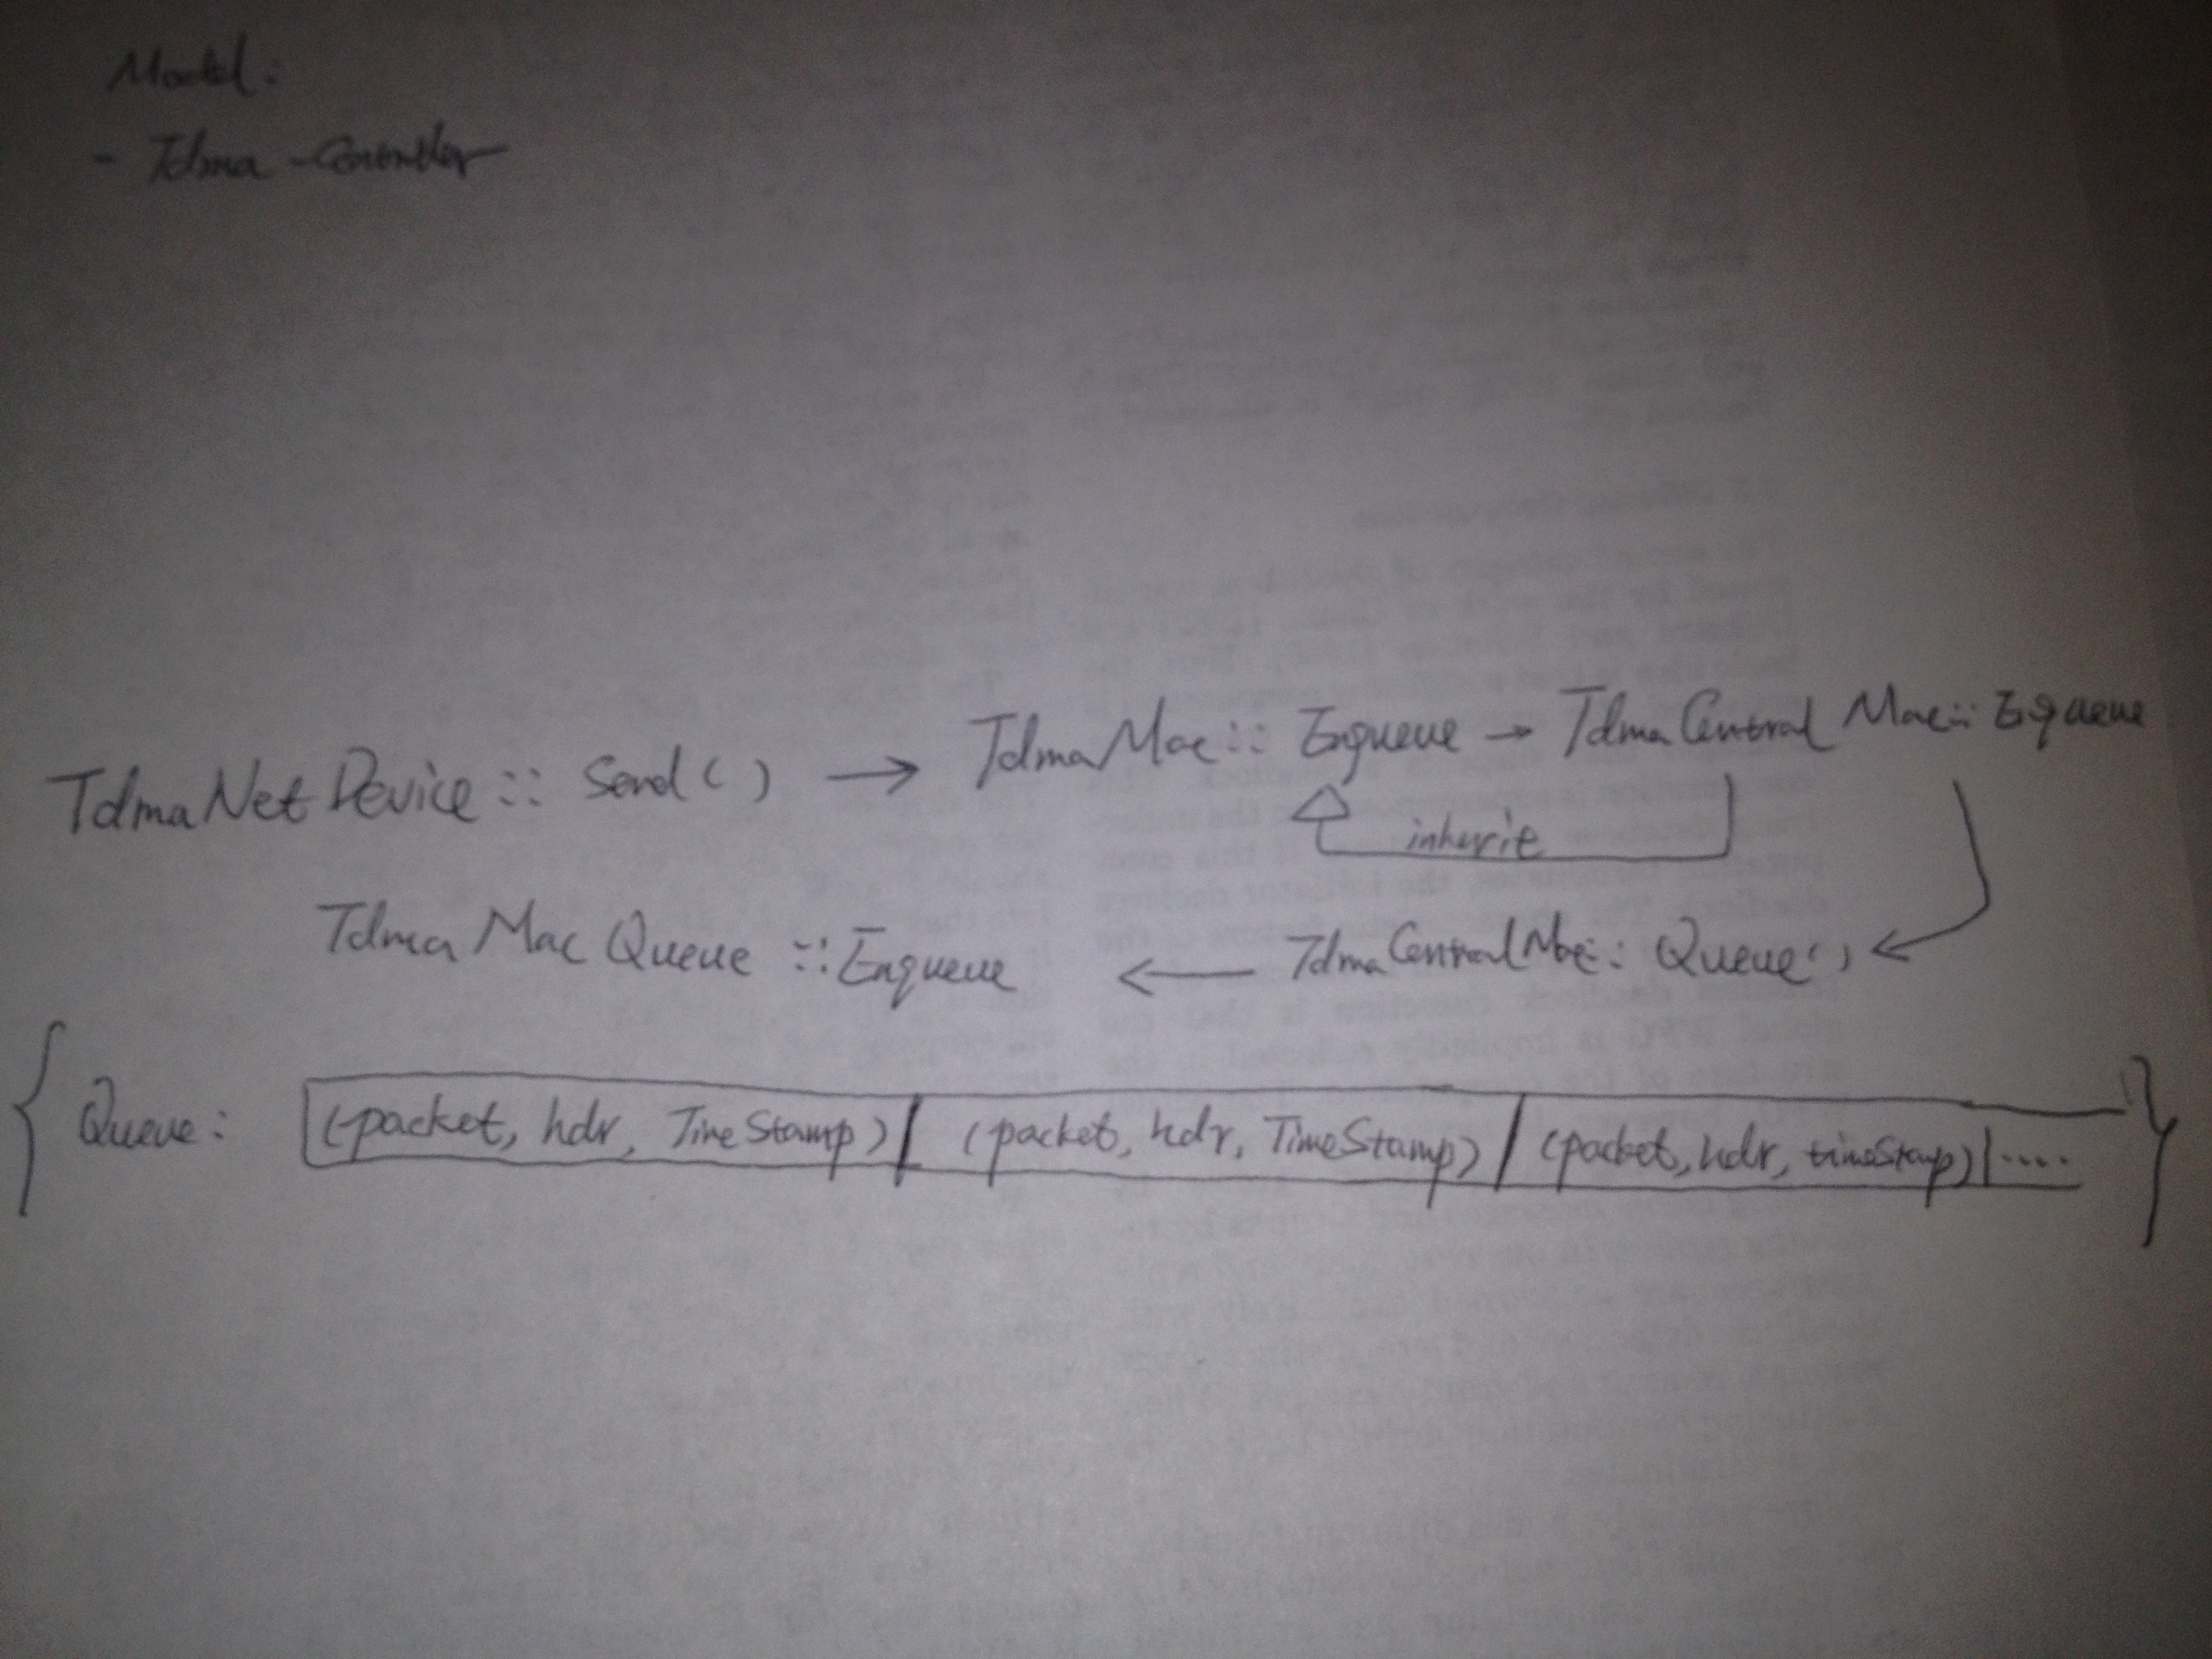 Model:
- Tdma - Controller
TdmaNetDevice :: Send() → TdmaMac :: Enqueue → TdmaCentralMac :: Enqueue
inherit
TdmaMacQueue :: Enqueue ← TdmaCentralMac :: Queue() ←
{ Queue : (packet, hdr, TimeStamp) | (packet, hdr, TimeStamp) | (packet, hdr, timeStamp) | .... }